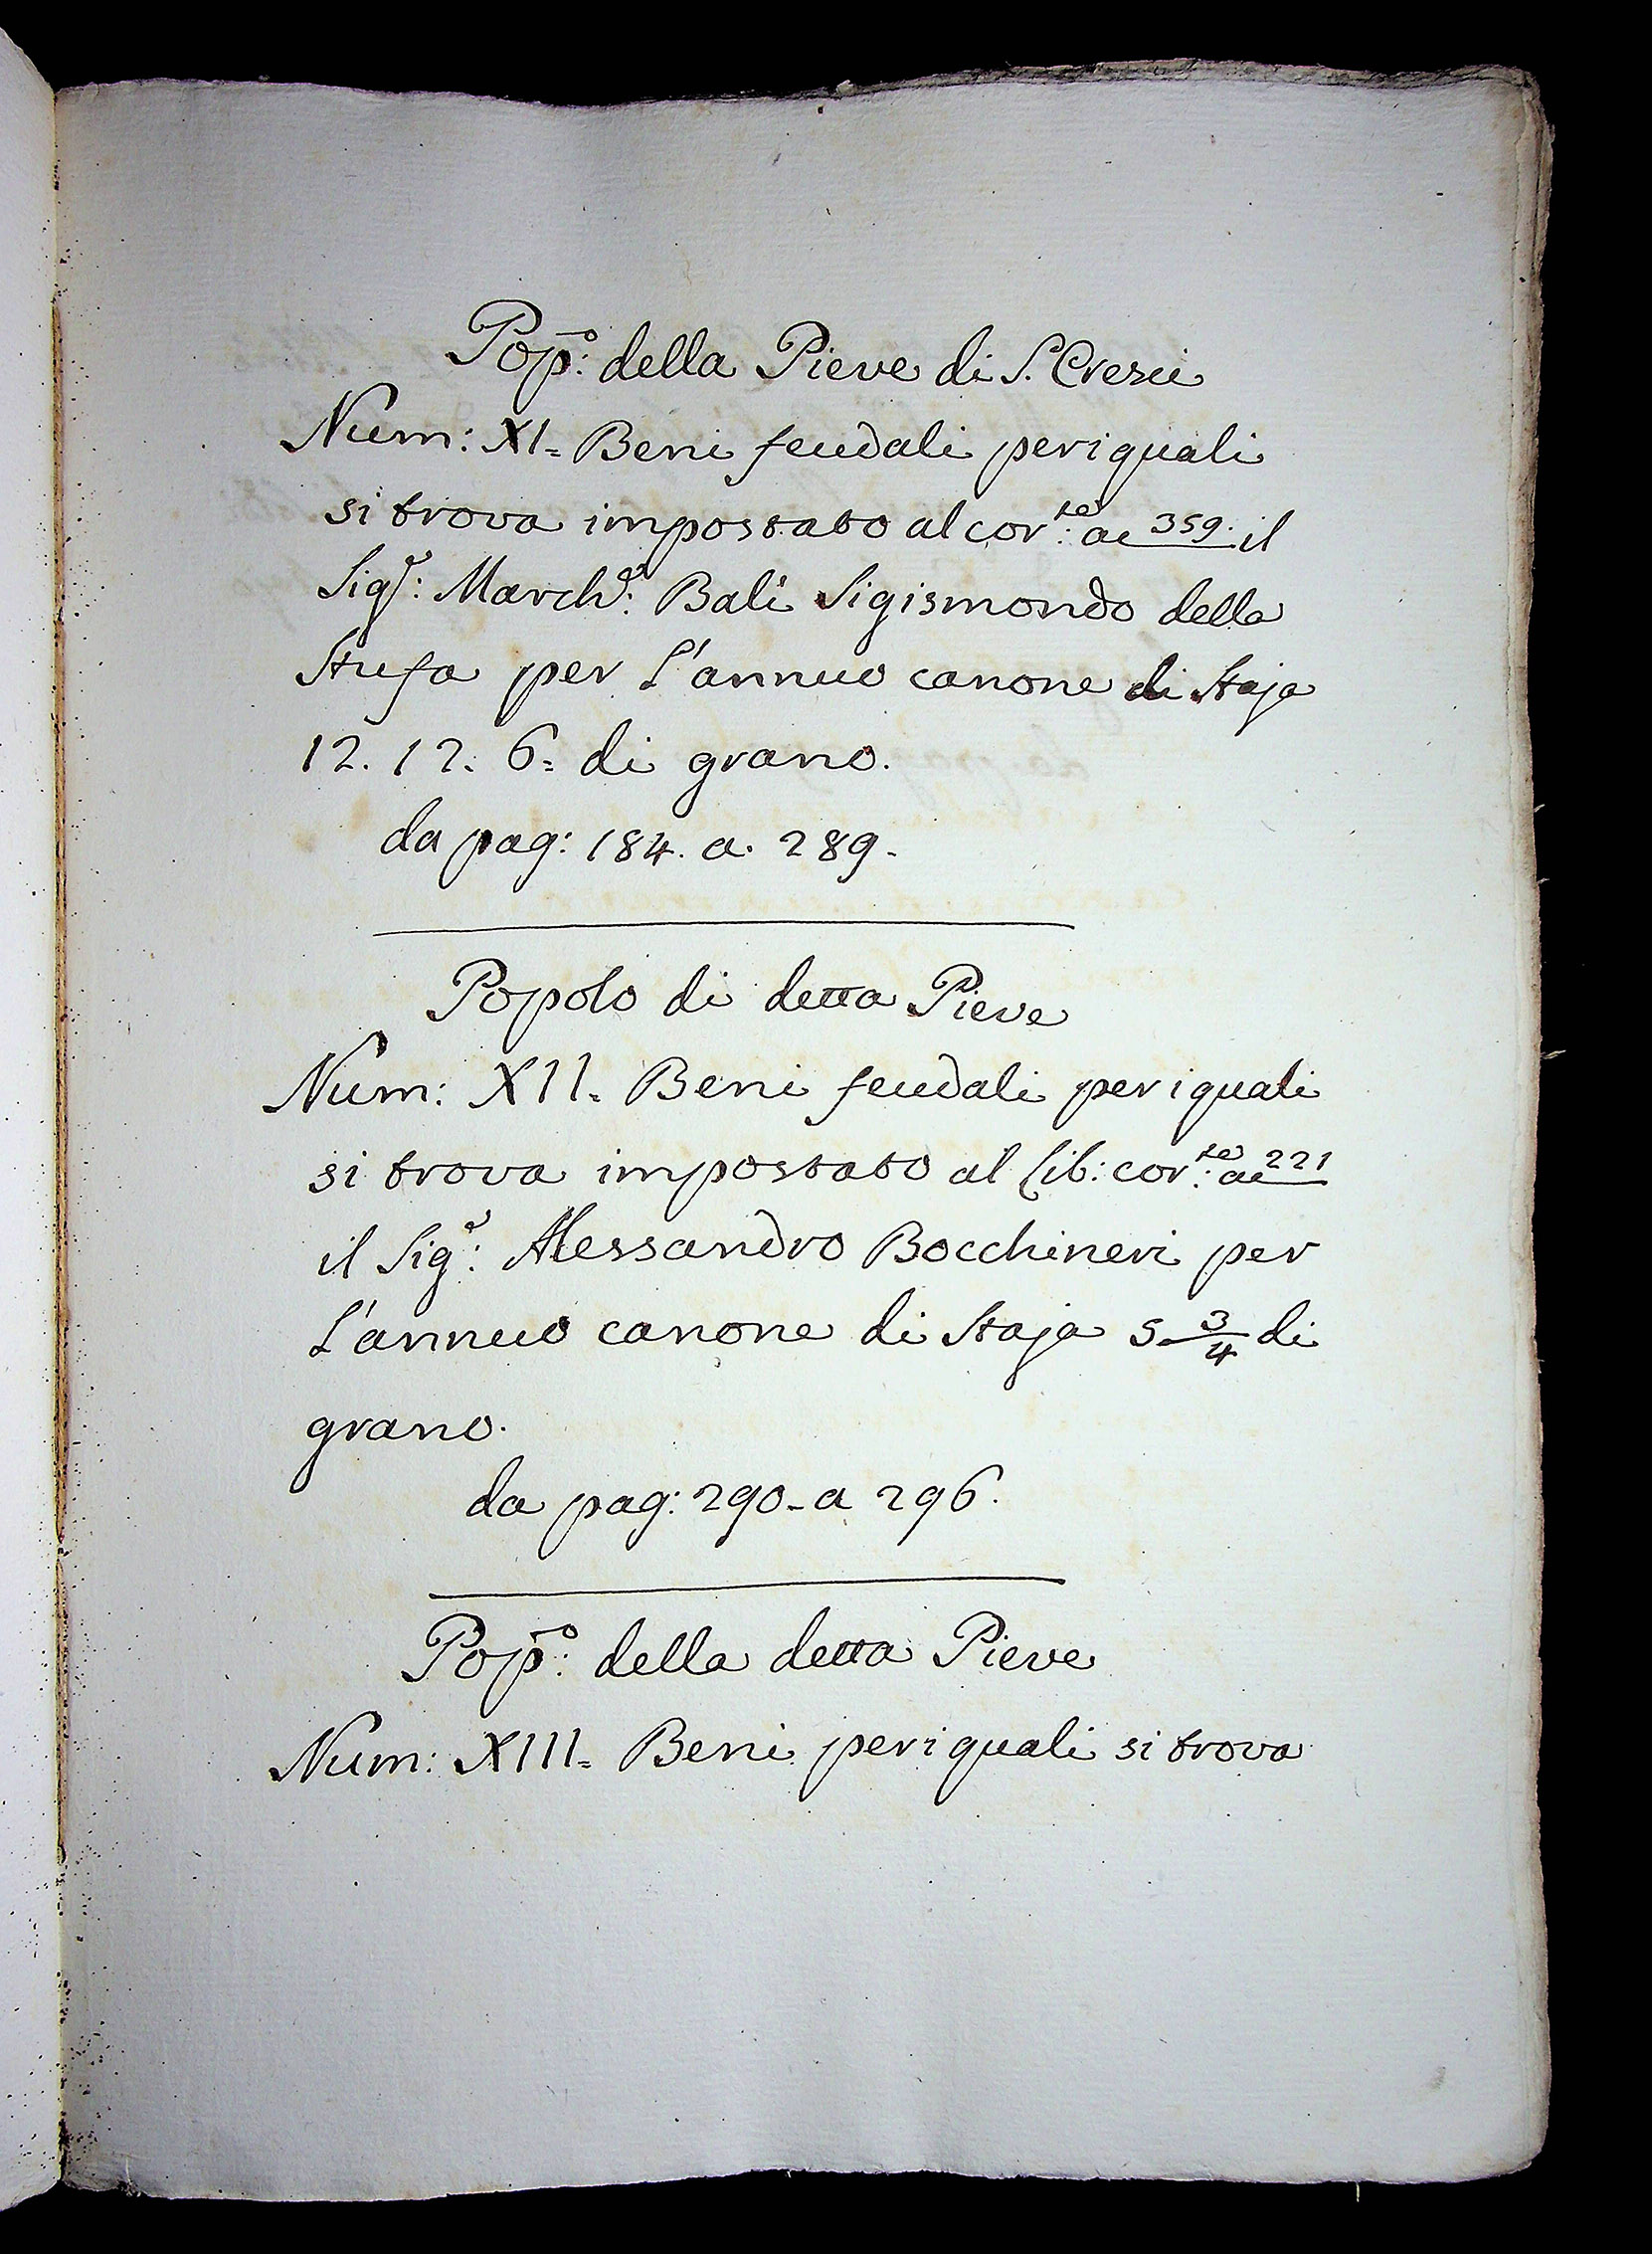 Pop̄o: della Pieve di S. Cresci
Num: XI= Beni feudali per i quali
si trova impostato al corte: ac 359. il
Sigr: Marche: Balì Sigismondo della
Stufa per L'annuo canone di Staja
12. 12. 6= di grano.
da pag: 184. a. 289.
Popolo di detta Pieve
Num: XII= Beni feudali per i quali
si trova impostato al Lib: corte: ac 221
il Sigr: Alessandro Bocchineri per
L'annuo canone di Staja 5 3/4 di
grano.
da pag: 290 - a 296.
Pop̄o: della detta Pieve
Num: XIII= Beni per i quali si trova